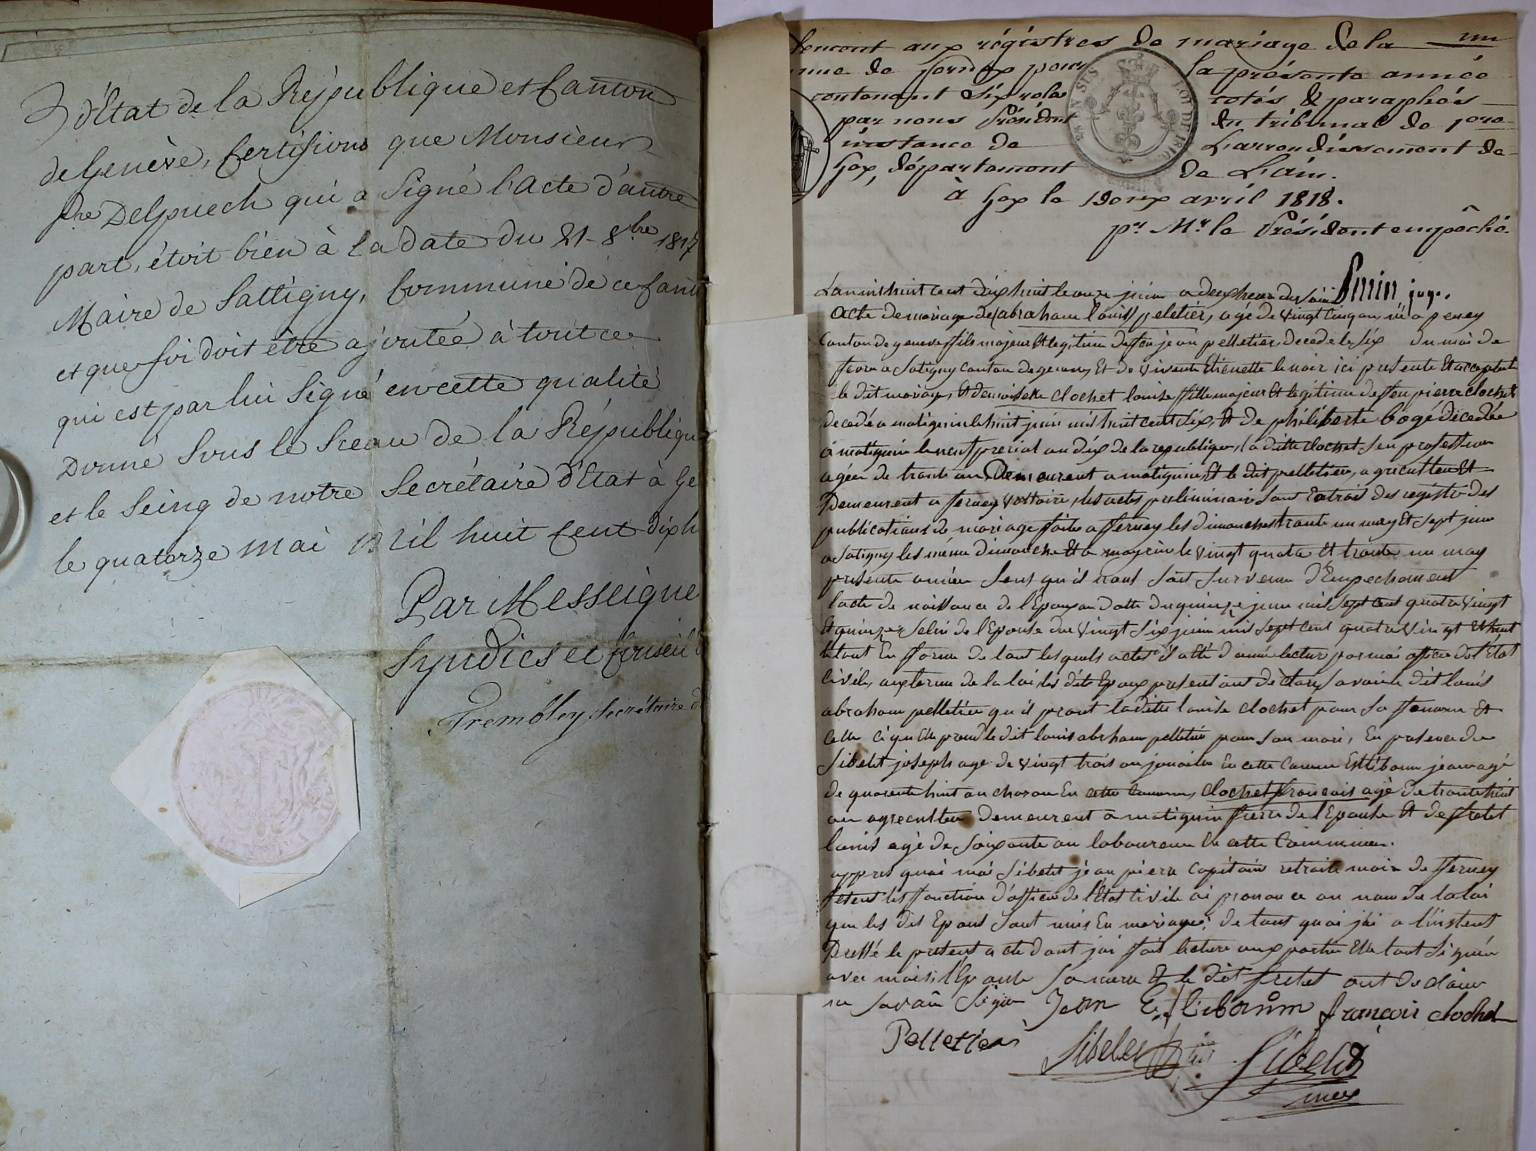 d'Etat de la République et Canton
de Genève, Certifions que Monsieur
Pre Delpuech qui a Signé l'Acte d'autre
part, étoit bien à la date du 21 - 8bre 1817
Maire de Sattigny, Commune de ce Cant
et que foi doit être ajoutée à tout ce
qui est par lui Signé en cette qualité
Donné sous le Sceau de la République
et le Seing de notre Secrétaire d'Etat à Ge
le quatorze Mai Mil huit Cent dix h
Par Messeigne
Syndics et Conseil
Trembley, Secrétaire d
aux régistres de mariage de la
de fernex pour la présente année
contenant Six cotés & paraphés
par nous Président du tribunal de 1ere
instance de L'arrondissement de
Gex, département de L'ain.
à Gex le avril 1818.
pr. Mr. le Président empêché.
Lan mil huit cent dix huit le onze juin a deux heures du soir juge.
acte de mariage de abraham louis pelletier, agé de vingt cinq an né a peney
Canton de geneve fils majeur et legitime de feu jean pelletier decedé le six du moi de
a Satigny canton de geneve, et de vivente lenoir ici presente et acceptant
le dit mariage, et demoiselle clochet louise fille majeur et legitime de feu pierre clochet
decedé a matignin le huit juin mil huit cent dix, et de philiberte bogé decedée
à matignin le an dix de la republique, la ditte clochet sen profession
agée de trante an Demeurent a matignin et le dit pelletier, agriculteur et
Demeurent a ferney voltaire, les actes preliminair sont extrait des registre des
publications de mariage faite a ferney les dimanches trante un may et sept juin
a Satigny les meme dimanche et a le vingt quatre et trante un may
presente année sens qu'il nous soit survenu d'Empechement
lacte de naissance de l'Epoux en datte du quinze juin mil sept cent quatre vingt
et quinze, selui de l'Epouse du vingt six juin mil sept cent quatre vingt et huit
En forme de tout lesquels actes il a eté donné lecture par moi officier de l'Etat
Civil, aux terme de la loi les dit Epoux presents ont déclaré savoir le dit louis
abraham pelletier qu'il prent laditte louise clochet pour sa femme et
celle ci qu'elle prend le dit louis abraham pelletier pour son mari, En presence de
Sibelet joseph agé de vingt trois an En cette Commune Estlibaum jean agé
de quarente huit an En cette Commune, clochet francois agé de trante huit
an agriculteur demeurent a matignin frere de l'Epouse et de fretet
louis agé de soixante an laboureur En cette Commune.
appres quoi moi Sibelet jean pierre Capitain retraité mair de ferney
fesent les fonction d'officier de l'Etat civil ai prononcé au nom de la loi
que les dit Epoux sont unis En mariage, de tout quoi j'ai a l'instent
Dressé le present acte dont j'ai fait lecture aux partie et le tout signée
avec moi, l'Epouse sa mere et le dit fretet ont declaré
ne savoir signer Jean Estlibaum francois clochet
Pelletier
Sibelet Sibelet
mair